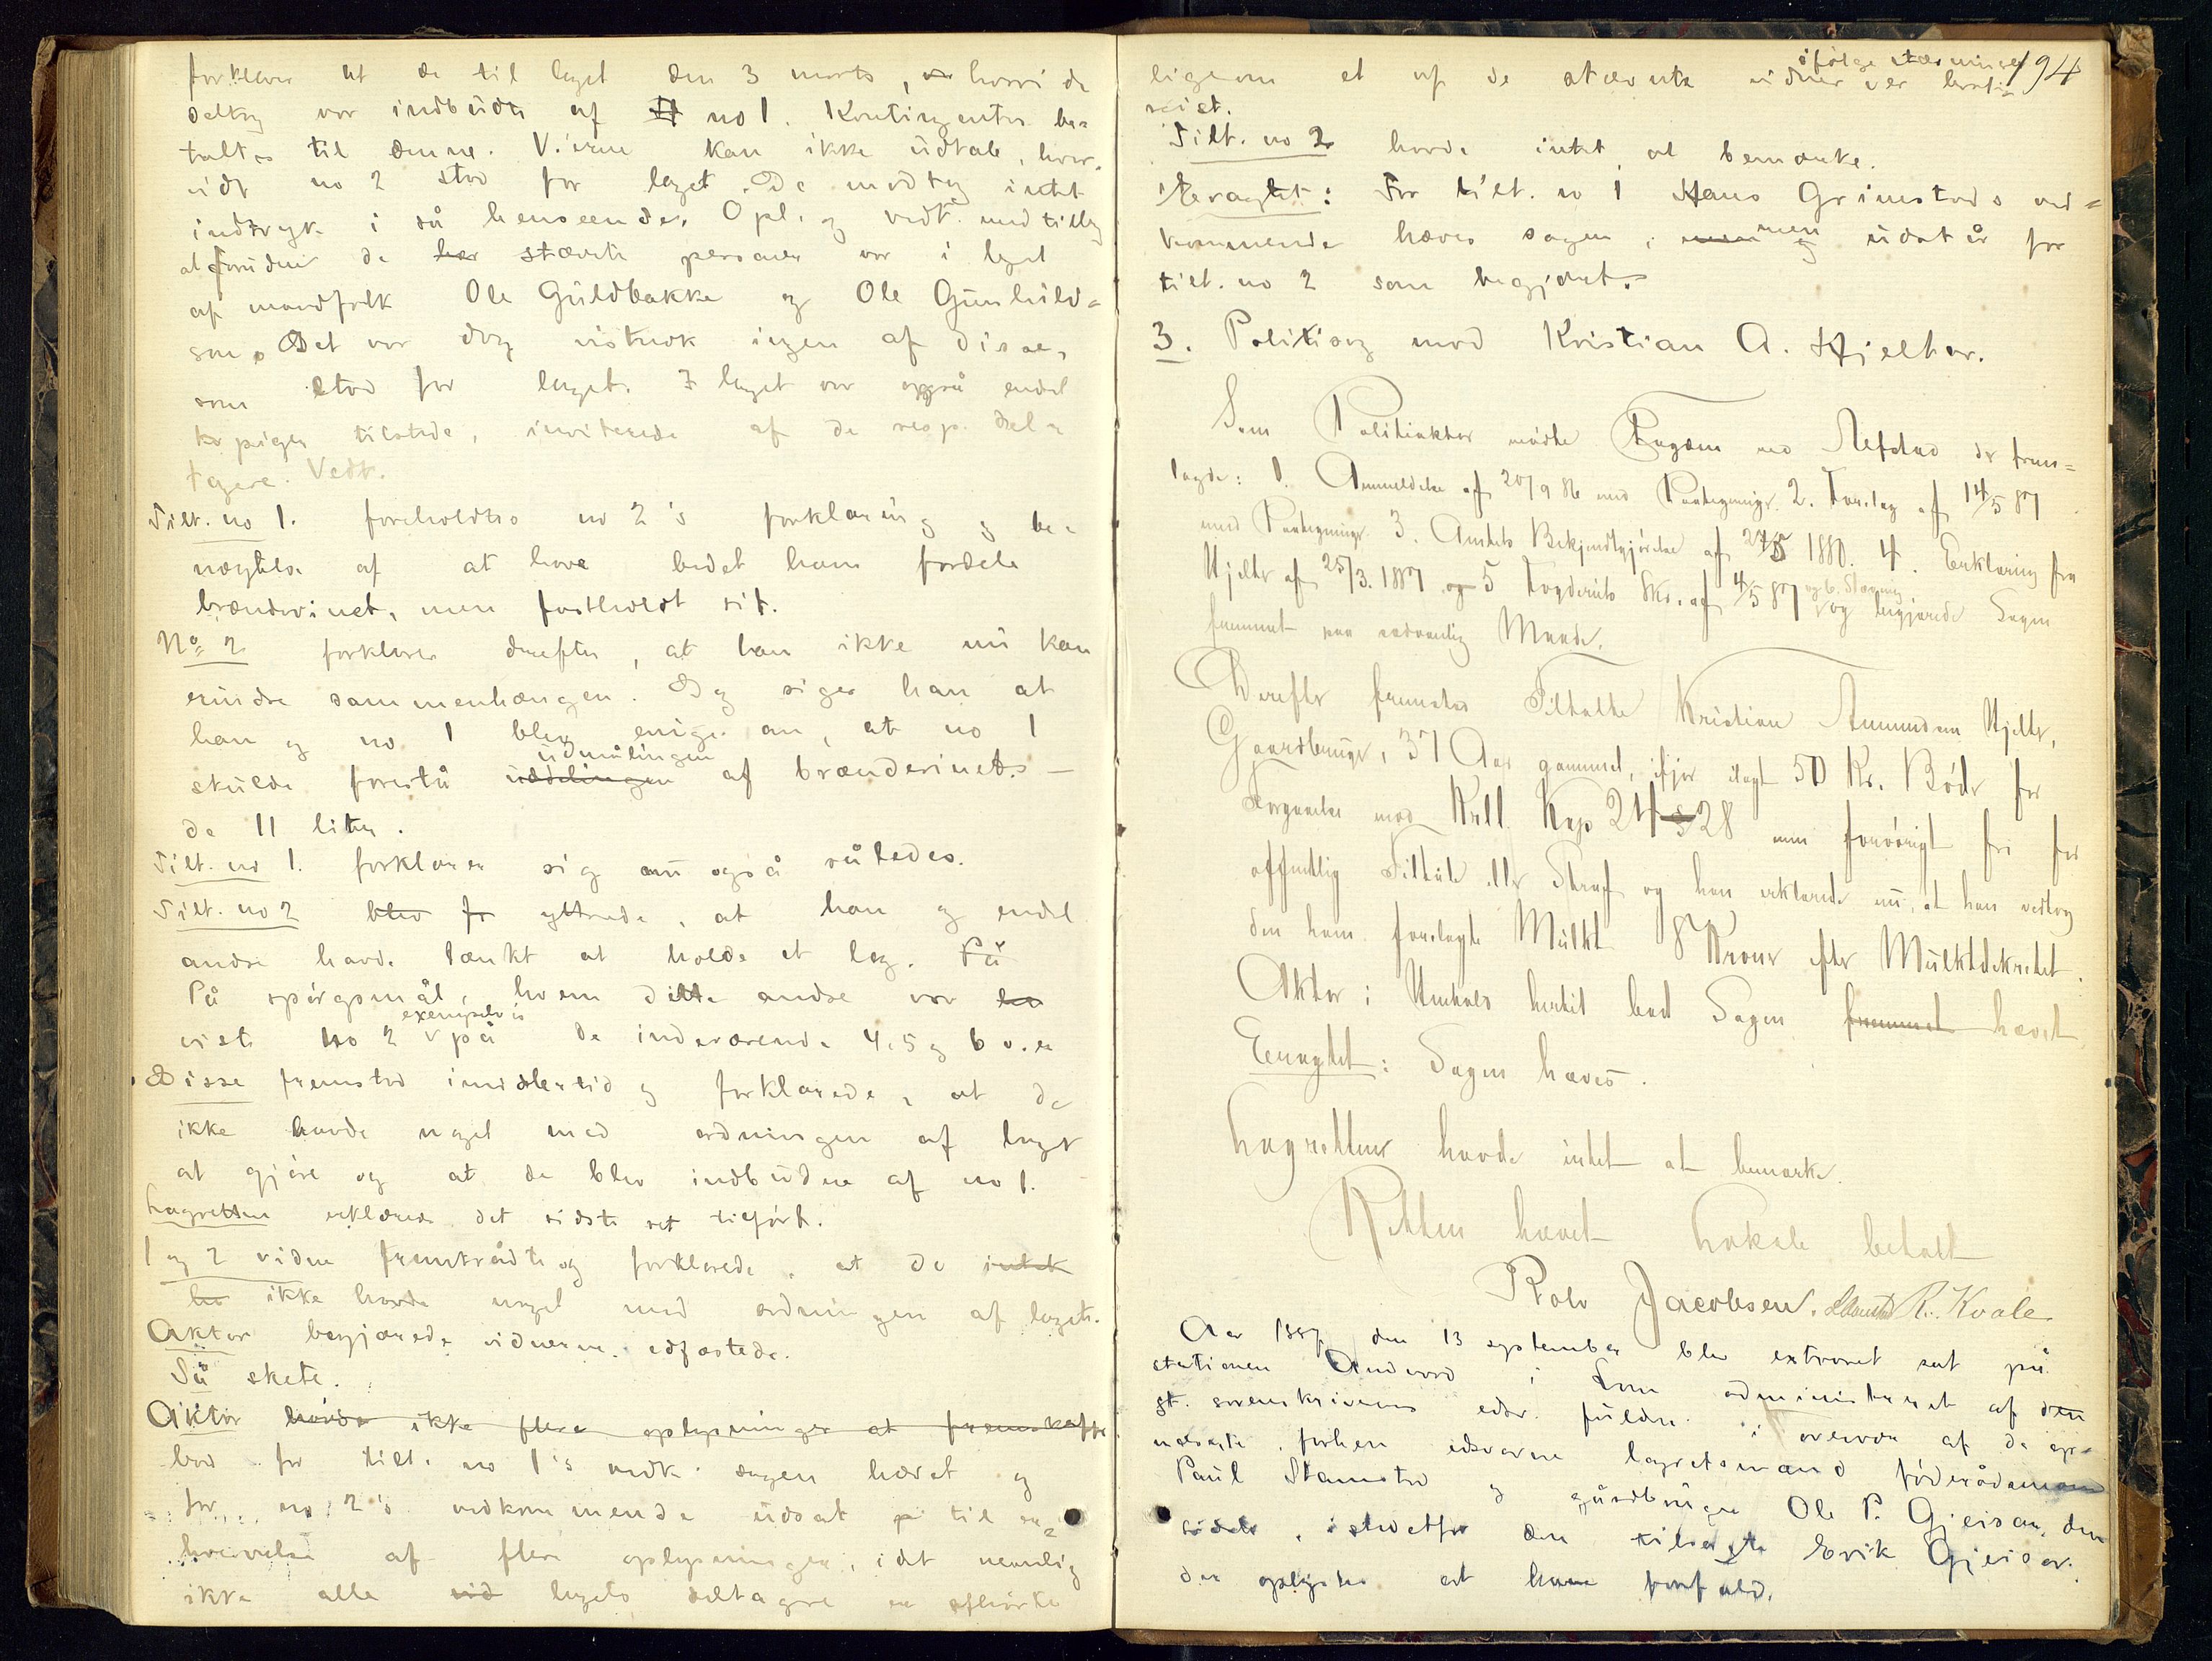 forklarer at de til laget den 3 marts, hvori de
deltog var indbudte af no 1. Kontingentes be-
taltes til denne. V.'erne kan ikke udtale, hvor-
vidt no 2 stod for laget. De modtog intet
indtryk i så henseende. Opl. og vedt. med tillæg
at foruden de her stævnte personer var i laget
af mandfolk Ole Guldbakke og Ole Gunhild-
son. Det var dog vistnok ingen af disse,
som stod for laget. I laget var også endel
piger tilstede, inviterede af de resp. del-
tagere. Vedt.
Tilt. no 1. foreholdtes no 2's forklaring og be-
nægtede af at have bedet ham fordele
brændevinet, men fastholdt sit.
No 2 forklarer derefter, at han ikke nu kan
erindre sammenhængen. Dog siger han at
han og no 1 blev enige om, at no 1
udmålingen
skulde forestå uddelingen af brændevinet. –
de 11 liter.
Tilt. no 1. forklarer sig nu også således.
Tilt. no 2 blev fr yttrede, at han og endel
andre havde tænkt at holde et lag. På
På spörgsmål, hvem disse andre var
exempelvis
viste no 2 på de indeværende 4, 5 og 6 v.er
Disse fremstod imidlertid og forklarede, at de
ikke havde noget med ordningen af laget
at gjöre og at de blev indbudne af no 1.
Lagretten erklærede det sidste ret tilfört.
1 og 2 vidne fremtrådte og forklarede, at de intet
ha ikke havde noget med ordningen af laget.
Aktor begjærede vidnerne edfæstede.
Så skete.
Aktor havde ikke flere oplysninger at fremskaffe
bad for tilt. no 1's vedk. sagen hævet og
for no 2's vedkommende udsat p til er-
hvervelse af flere oplysninger, idet nemlig
ikke alle vid lagets deltagere er afhörte
194
ifölge stævningen
ligesom et af de stævnte vidner er bort-
reist.
Tilt. no 2 havde intet at bemærke.
Eragtet: For tilt. no 1 Hans Grimstads ved-
kommende hæves sagen, men udstår for
tilt. no 2 som begjæret.
3. Politisag mod Kristian A. Hjelter.
Som Politiaktor mödte Fogden ved Nefstad der frem-
lagde: 1. Anmeldelse af 20/9 86 med Paategninger. 2. Forelæg af 14/5 87
med Paategninger 3. Amtets Bekjendtgjörelse af 27/5 1880. 4. Erklæring fra
Hjelter af 25/3. 1887 og 5 Fogderiets Skr. af 4/5 87 og 6. Stævning og begjærede Sagen
fremmet paa sædvanlig Maade.
Derefter fremstod Tiltalte Kristian Amundsen Hjelter,
Gaardbruger, 37 Aar gammel, ifjor ilagt 50 Kr. Böder for
Forgaaelse mod Krll. Kap 24 § 28 men forövrigt fri for
offentlig Tiltale eller Straf og han erklærede nu, at han vedtog
den ham forelagte Mulkt 8 Kroner efter Mulktdekretet.
Aktor i Henhold hertil bad Sagen fremmet hævet.
Eragtet: Sagen hæves.
Lagretten havde intet at bemærke.
Retten hævet Lokale betalt
Rolv Jacobsen. R. Kvale
Aar 1887 den 13 september blev extraret sat på
stationen Andvord i Lom administreret af den
st. sorenskrivers edsv. fuldm. i overvær af de op-
nævnte, forhen edsvorne lagretsmænd föderådsmand
Paul Stamstad og gårdbruger Ole P. Gjeisar, den
sidste istedetfor den tilsagte Erik Gjeisar.
der oplystes at have forfald.